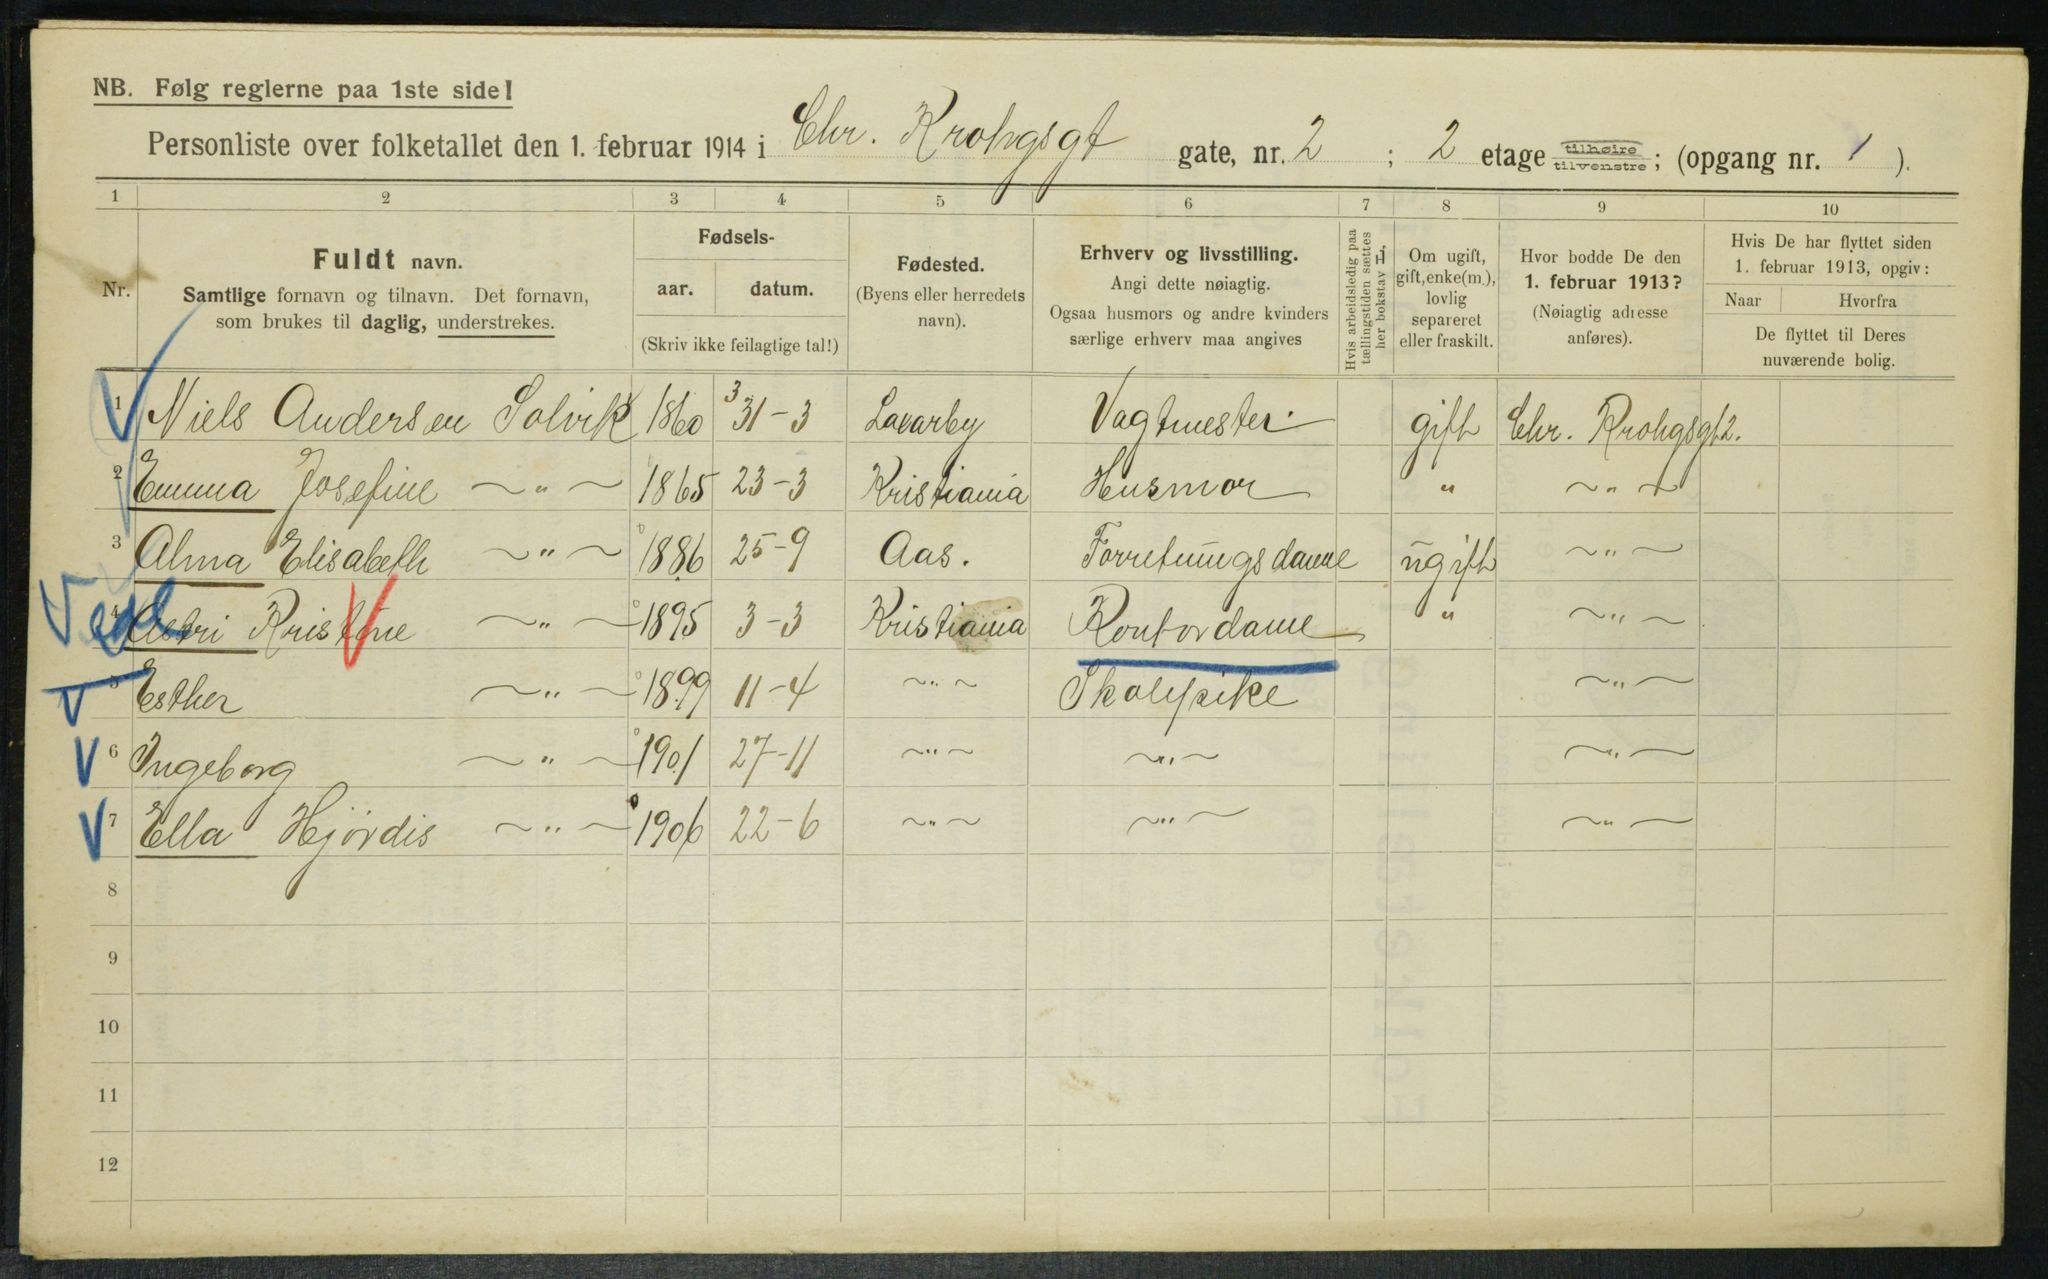 NB. Følg reglerne paa 1ste side!
Personliste over folketallet den 1. februar 1914 i Chr. Krohgsgt gate, nr. 2 ; 2 etage tilhøire tilvenstre ; (opgang nr. 1 ).
1 2 3 4 5 6 7 8 9 10
Nr.
Fuldt navn.
Samtlige fornavn og tilnavn. Det fornavn,
som brukes til daglig, understrekes.
Fødsels-
aar. datum.
(Skriv ikke feilagtige tal!)
Fødested.
(Byens eller herredets
navn).
Erhverv og livsstilling.
Angi dette nøiagtig.
Ogsaa husmors og andre kvinders
særlige erhverv maa angives
Hvis arbeidsledig paa
tællingstiden sættes
her bokstav L,
Om ugift,
gift, enke(m.),
lovlig
separeret
eller fraskilt.
Hvor bodde De den
1. februar 1913?
(Nøiagtig adresse
anføres).
Hvis De har flyttet siden
1. februar 1913, opgiv:
Naar Hvorfra
De flyttet til Deres
nuværende bolig.
1 Niels Andersen Solvik 1860 31-3 Vagtmester gift Chr. Krohgsgt 2.
2 Emma Josefine ~"~ 1865 23-3 Kristiania Husmor " ~"~
3 Alma Elisabeth ~"~ 1886 25-9 Aas. Forretningsdame ugift ~"~
4 Astri Kristine ~"~ 1895 3-3 Kristiania Kontordame " ~"~
5 Esther ~"~ 1899 11-4 ~"~ Skolepike ~"~
6 Ingeborg ~"~ 1901 27-11 ~"~ ~"~ ~"~
7 Ella Hjördis ~"~ 1906 22-6 ~"~ ~"~ ~"~
8
9
10
11
12